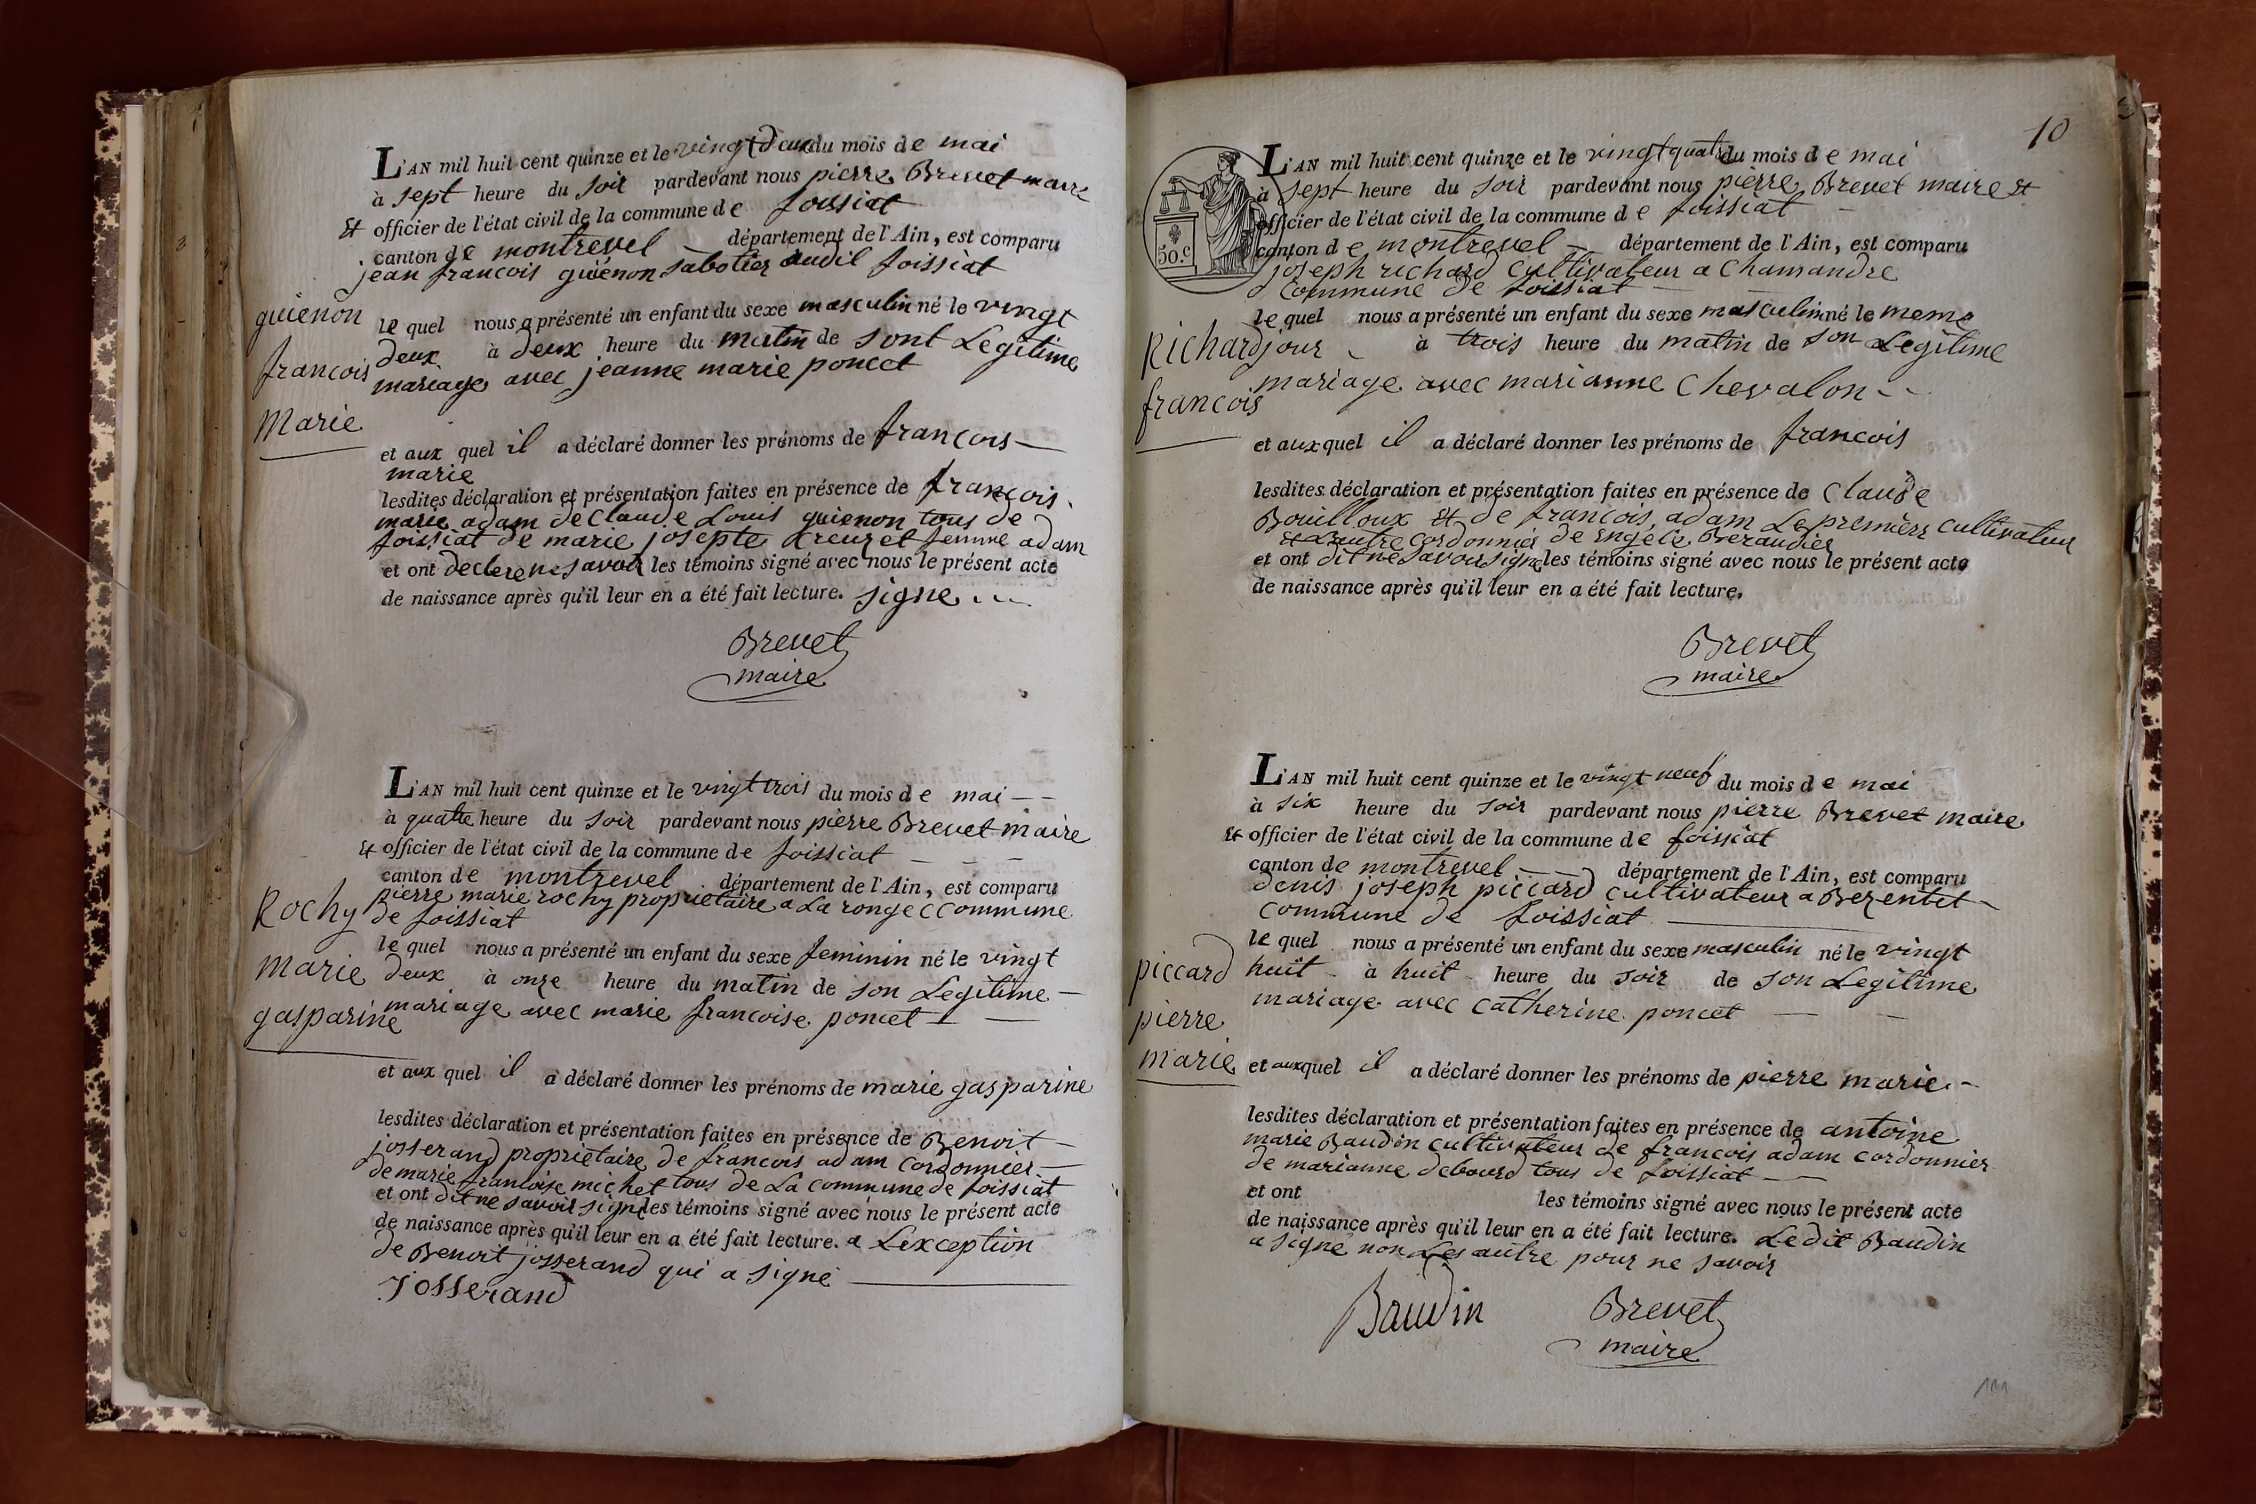 L'AN mil huit cent quinze et le vingt deux du mois de mai
à sept heure du soir pardevant nous pierre Brevet maire
et officier de l'état civil de la commune de foissiat
canton de montrevel département de l'Ain, est comparu
jean francois guienon sabotier audit foissiat
guienon
le quel nous a présenté un enfant du sexe masculin né le vingt
deux à deux heure du matin de sont Legitime
francois
mariage avec jeanne marie poncet
Marie
et aux quel il a déclaré donner les prénoms de francois
marie
lesdites déclaration et présentation faites en présence de francois
marie adam de Claude Louis guienon tous de
foissiat de marie josepte femme adam
et ont declere ne savoir les témoins signé avec nous le présent acte
de naissance après qu'il leur en a été fait lecture. signe
Brevet
maire
L'AN mil huit cent quinze et le vingt trois du mois de mai
à quatre heure du soir pardevant nous pierre Brevet maire
et officier de l'état civil de la commune de foissiat
canton de montrevel département de l'Ain, est comparu
pierre marie rochy proprietaire a La ronge commune
Rochy
de foissiat
le quel nous a présenté un enfant du sexe feminin né le vingt
marie
deux à onze heure du matin de son Legitime
gasparine
mariage avec marie francoise poncet
et aux quel il a déclaré donner les prénoms de marie gasparine
lesdites déclaration et présentation faites en présence de Benoit
josserand proprietaire de francois adam cordonnier
de marie francoise michet tous de La commune de foissiat
et ont dit ne savoir signe les témoins signé avec nous le présent acte
de naissance après qu'il leur en a été fait lecture. a Lexception
de Benoit josserand qui a signe
Josserand
10
50.C
L'AN mil huit cent quinze et le vingt quatre du mois de mai
à sept heure du soir pardevant nous pierre Brevet maire et
officier de l'état civil de la commune de foissiat
canton de montrevel département de l'Ain, est comparu
joseph richard cultivateur a Chamandre
commune de foissiat
le quel nous a présenté un enfant du sexe masculin né le meme
Richard
jour à trois heure du matin de son Legitime
mariage avec marianne Chevalon
francois
et aux quel il a déclaré donner les prénoms de francois
lesdites déclaration et présentation faites en présence de Claude
Bouilloux et de francois adam Le premiere cultivateur
et Lautre cordonnier de Engele Beraudier
et ont dit ne savoir signe les témoins signé avec nous le présent acte
de naissance après qu'il leur en a été fait lecture.
Brevet
maire
L'AN mil huit cent quinze et le vingt neuf du mois de mai
à six heure du soir pardevant nous pierre Brevet maire
et officier de l'état civil de la commune de foissiat
canton de montrevel département de l'Ain, est comparu
denis joseph piccard cultivateur a Bezentet
commune de foissiat
le quel nous a présenté un enfant du sexe masculin né le vingt
piccard
huit à huit heure du soir de son Legitime
mariage avec catherine poncet
pierre
marie
et aux quel il a déclaré donner les prénoms de pierre marie
lesdites déclaration et présentation faites en présence de antoine
marie Baudin cultivateur de francois adam cordonnier
de marianne debourd tous de foissiat
et ont les témoins signé avec nous le présent acte
de naissance après qu'il leur en a été fait lecture. Ledit Baudin
a signe non Les autre pour ne savoir
Baudin
Brevet
maire